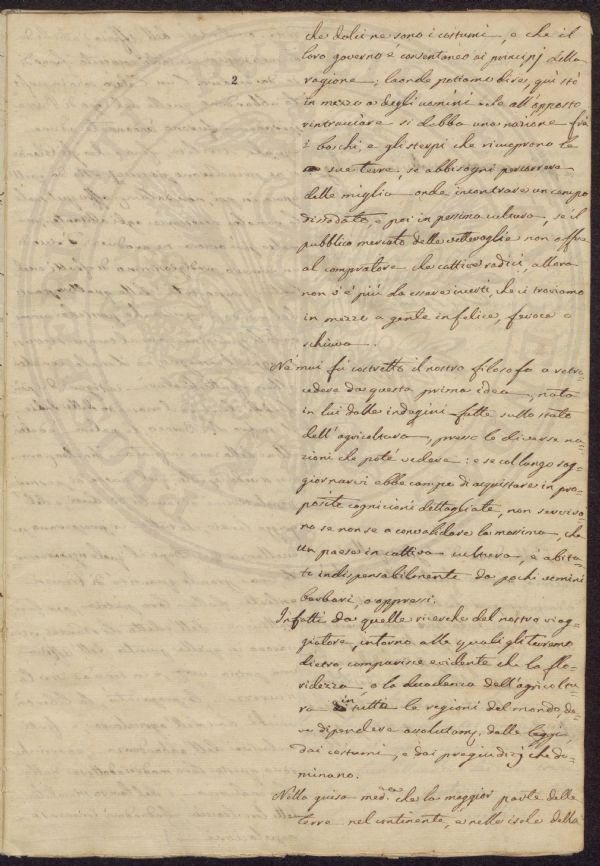 che dolci ne sono i costumi, e che il
loro governo è consentaneo ai principj della
2
ragione; laonde potiamo dire, qui stò
in mezzo a degli uomini se all'opposto
rintracciare si debba una nazione frà
i boschi, e gli sterpi che ricuoprono le
sue terre, se abbisogni percorrere
delle miglia onde incontrare un campo
dissodato, e poi in pessima cultura, se il
pubblico mercato delle vettovaglie non offre
al compratore che cattive radici, allora
non v'è più da essere incerti, che ci troviamo
in mezzo a gente infelice, feroce o
schiava.
Nè mai fù costretto il nostro filosofo a retro=
cedere da questa prima idea, nata
in lui dalle indagini fatte sullo stato
dell'agricoltura, presso le diverse na=
zioni che potè vedere: e se col lungo sog=
giornarvi ebbe campo di acquistare in pro=
posito cognizioni dettagliate, non serviro=
no se non se a convalidare la massima, che
un paese in cattiva cultura, è abita=
to indispensabilmente da pochi uomini
barbari, o oppressi.
Infatti da quelle ricerche del nostro viag=
giatore, intorno alla quali gli terremo
dietro, comparisce evidente che la flo=
ridezza, o la decadenza dell'agricoltu=
ra in tutte le regioni del mondo, de=
ve dipendere assolutam. dalle leggi,
dai costumi, e dai pregiudizj che do=
minano.
Nella guisa med.ma che la maggior parte della
terra nel continente, e nelle isole della